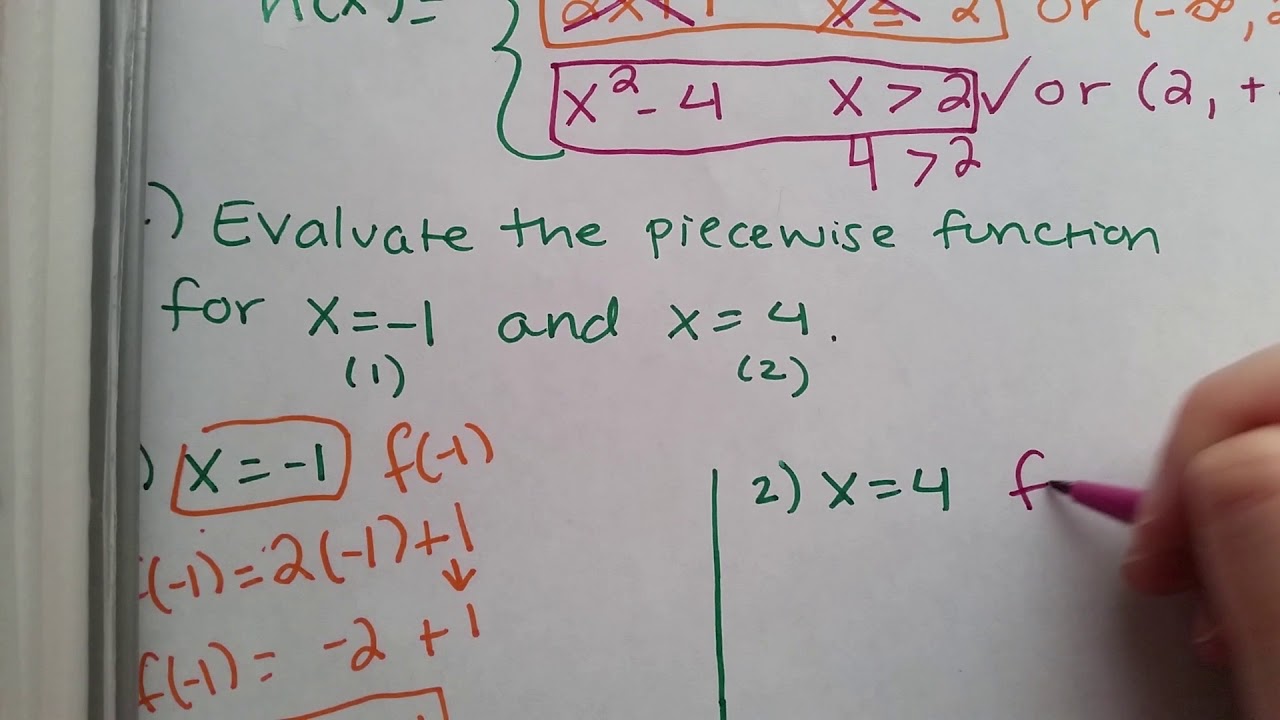 h(x)= 2x+1 x ≤ 2 or (-∞, 2
x² - 4 x > 2 ✓ or (2, +
4 > 2
.) Evaluate the piecewise function
for x = -1 and x = 4.
(1) (2)
) x = -1 f(-1)
2) x = 4 f
f(-1) = 2(-1) + 1
f(-1) = -2 + 1